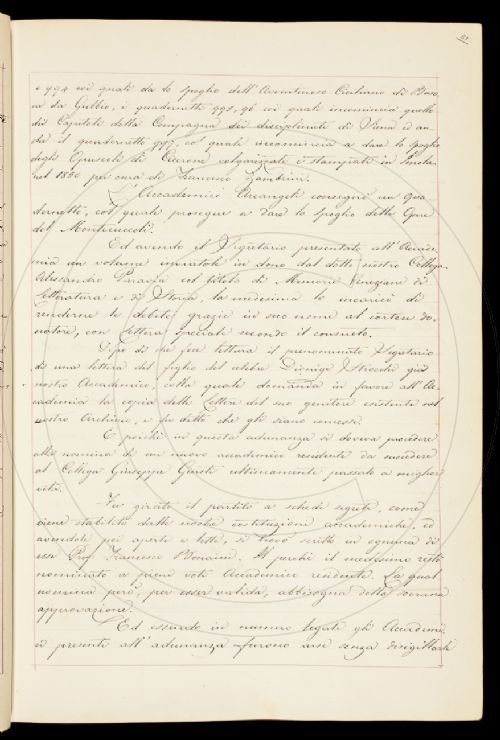 91.
e 994 coi quali da lo spoglio dell'Avventuroso Ciciliano di Boso-
ne da Gubbio, i quadernetti 995, 96 coi quali incomincia quello
dei Capitoli della Compagnia dei disciplinati di Siena ed an-
che il quadernetto 997, col quale incomincia a dare lo spoglio
degli Opuscoli di Cicerone volgarizzati e stampati in Imola
nel 1850 per cura di Francesco Zambrini.
L'Accademico Arcangeli consegnò un qua-
dernetto, col quale prosegue a dare lo spoglio delle Opere
del Montecuccoli.
Ed avendo il Segretario presentato all'Accade-
mia un volume inviatole in dono dal dotto nostro Collega
Alessandro Paravia col titolo di Memorie Veneziane di
Letteratura e di Storia, la medesima lo incaricò di
renderne le debite grazie in suo nome al cortese do-
natore, con lettera speciale secondo il consueto.
Dopo di che fece lettura il prenominato Segretario
di una lettera del figlio del celebre Dionigi Strocchi già
nostro Accademico, colla quale domanda in favore all'Ac-
cademia la copia delle Lettere del suo genitore esistenti nel
nostro Archivio, e fu detto che gli siano concesse.
E poichè in questa adunanza si doveva procedere
alla nomina di un nuovo accademico residente da succedere
al Collega Giuseppe Giusti ultimamente passato a miglior
vita.
Fu girato il partito a schede segrete, come
viene stabilito dalle nostre costituzioni accademiche, ed
avendole poi aperte e lette, si trovò scritto in ognuna di
esse Prof. Francesco Bonaini. Il perchè il medesimo restò
nominato a pieni voti Accademico residente. La qual
nomina però, per esser valida, abbisogna della sovrana
approvazione.
Ed essendo in numero legale gli Accademi-
ci presenti all'adunanza furono arse senza disigillarle